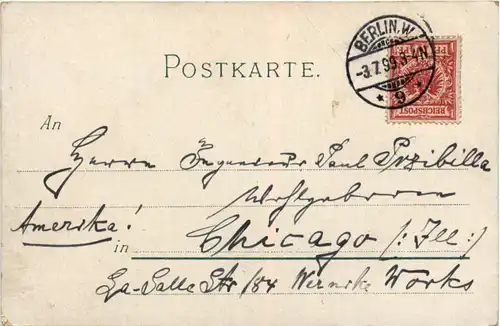 BERLIN.W.
-3.7.99.3-4N
* 9 *
REICHSPOST
POSTKARTE.
An
Herrn Ingenieur Paul Przibilla
Wohlgeboren
Amerika!
in Chicago (:Ill:)
La-Salle Str /84 Wernike Works